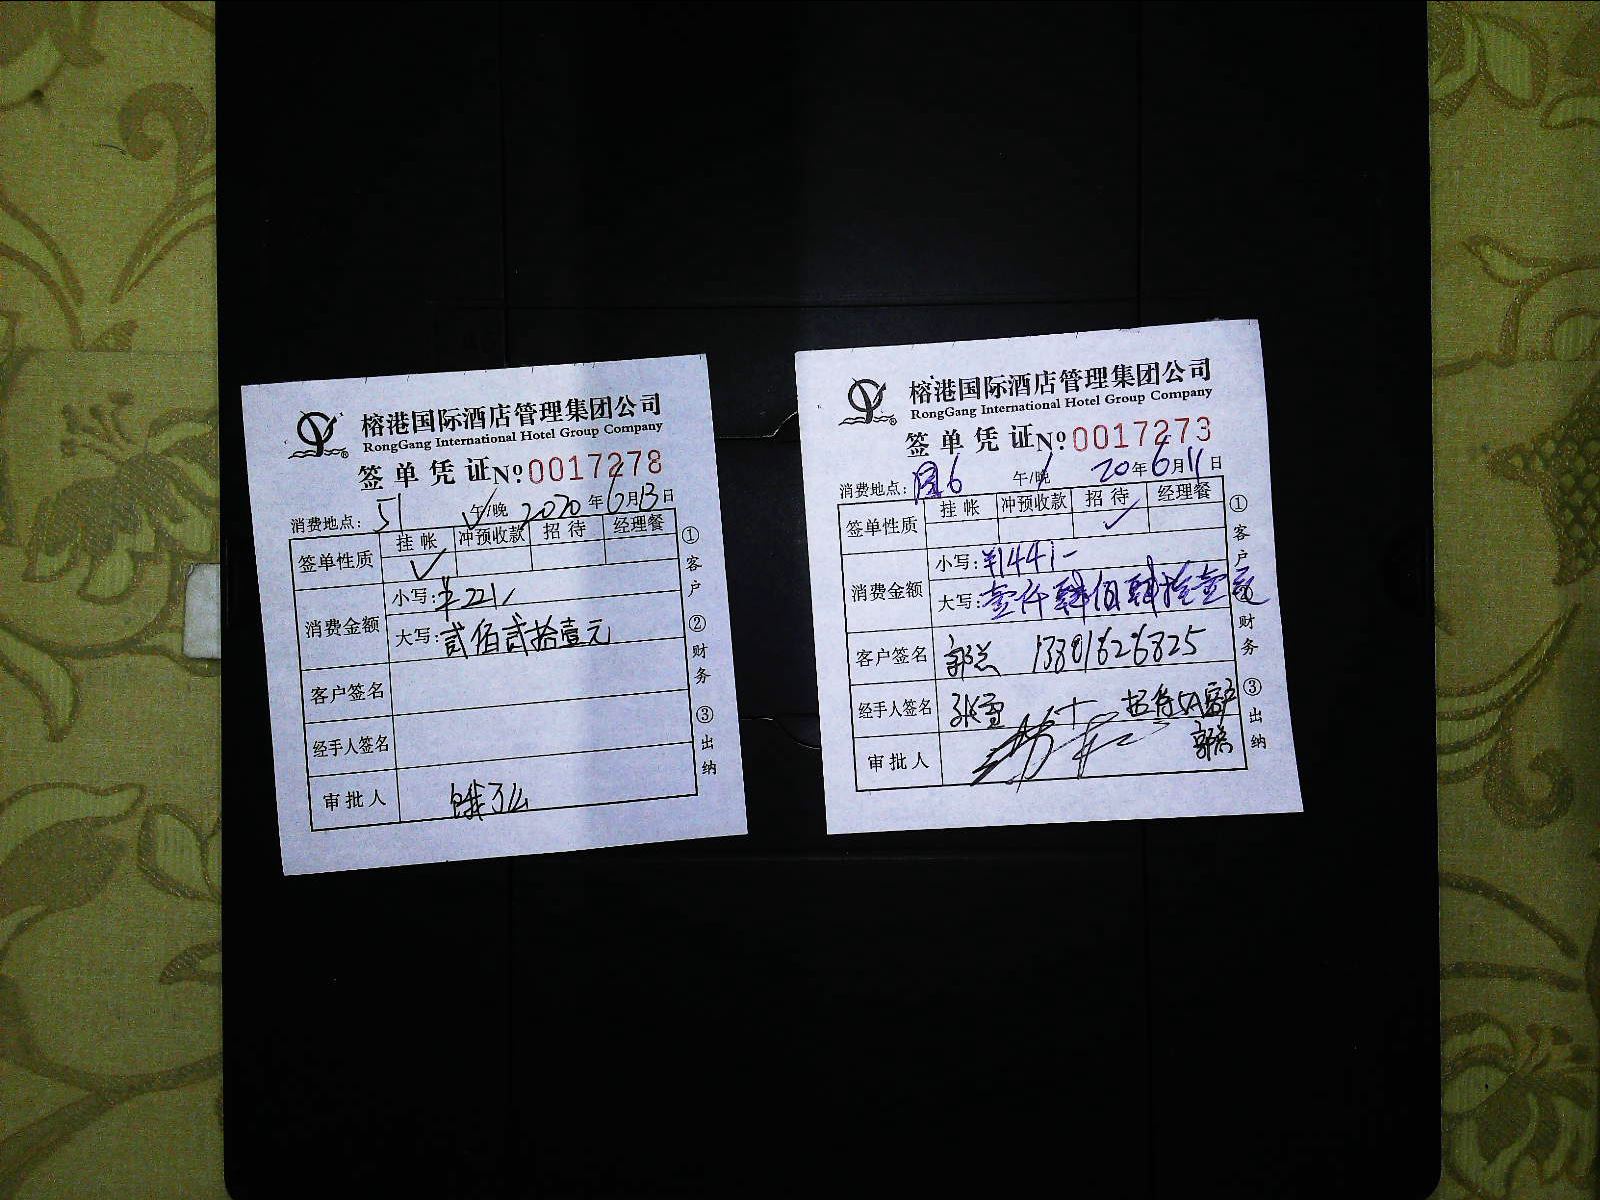 榕港国际酒店管理集团公司
RongGang International Hotel Group Company
签单凭证 № 0017278
消费地点: 51 午/晚 2020年6月13日
签单性质 挂帐 冲预收款 招待 经理餐
✓
消费金额 小写: ¥221/
大写: 贰佰贰拾壹元
客户签名
经手人签名
审批人 饿了么
①客户 ②财务 ③出纳
榕港国际酒店管理集团公司
RongGang International Hotel Group Company
签单凭证 № 0017273
消费地点: 6 午/晚 20年6月11日
签单性质 挂帐 冲预收款 招待 经理餐
✓
消费金额 小写: ¥1441-
大写: 壹仟肆佰肆拾壹元
客户签名 郭总 13801626825
经手人签名 张雪 招待5A客户
郭总
审批人
①客户 ②财务 ③出纳